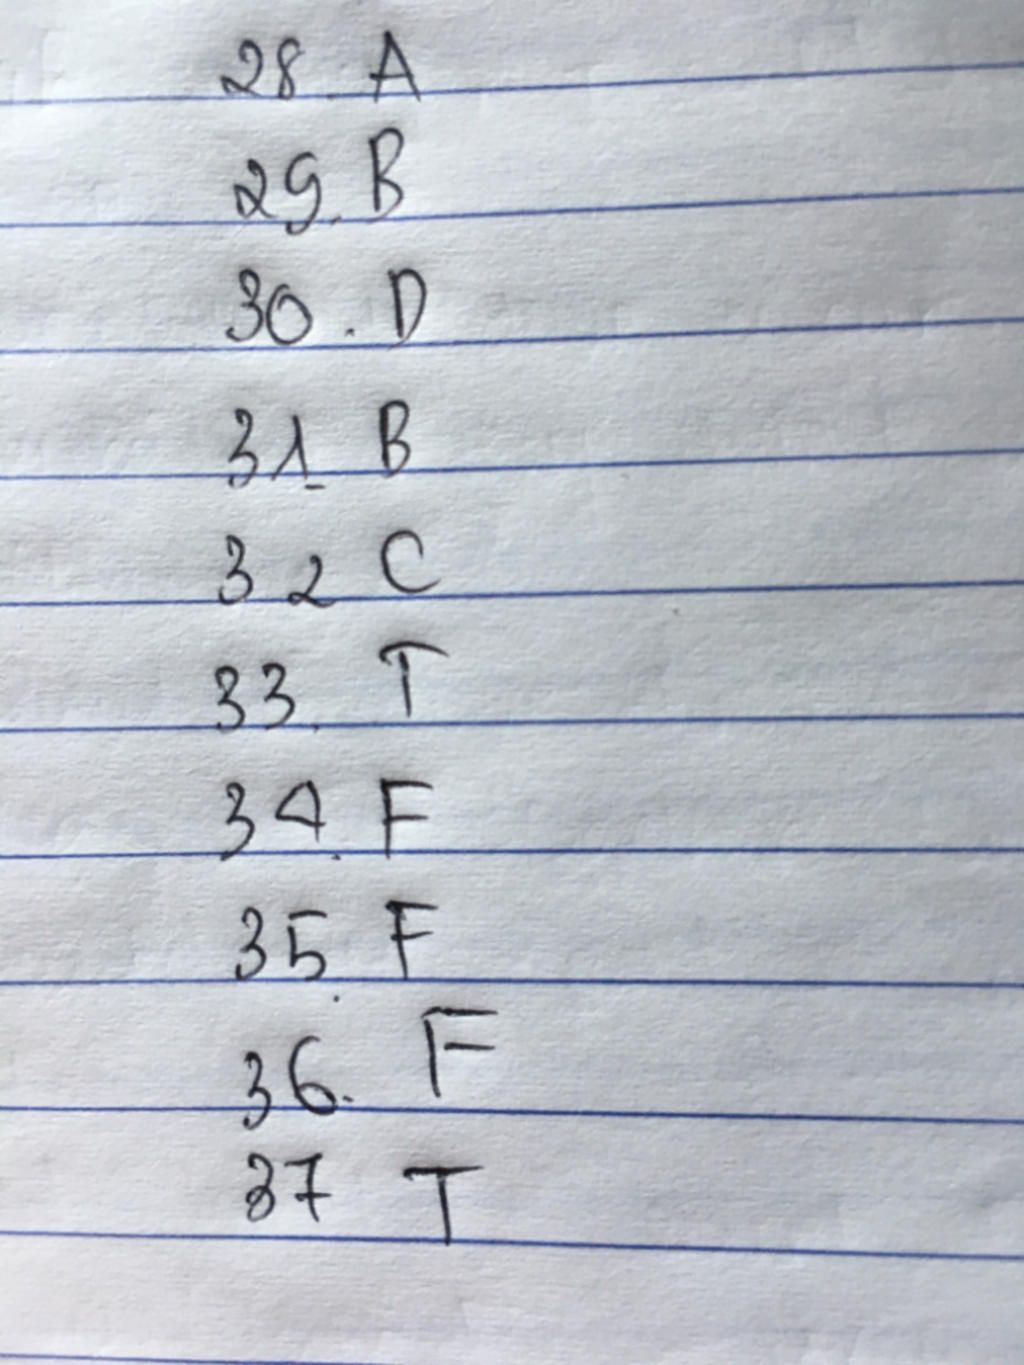 28. A
29. B
30. D
31. B
32 C
33. T
34. F
35. F
36. F
37 T